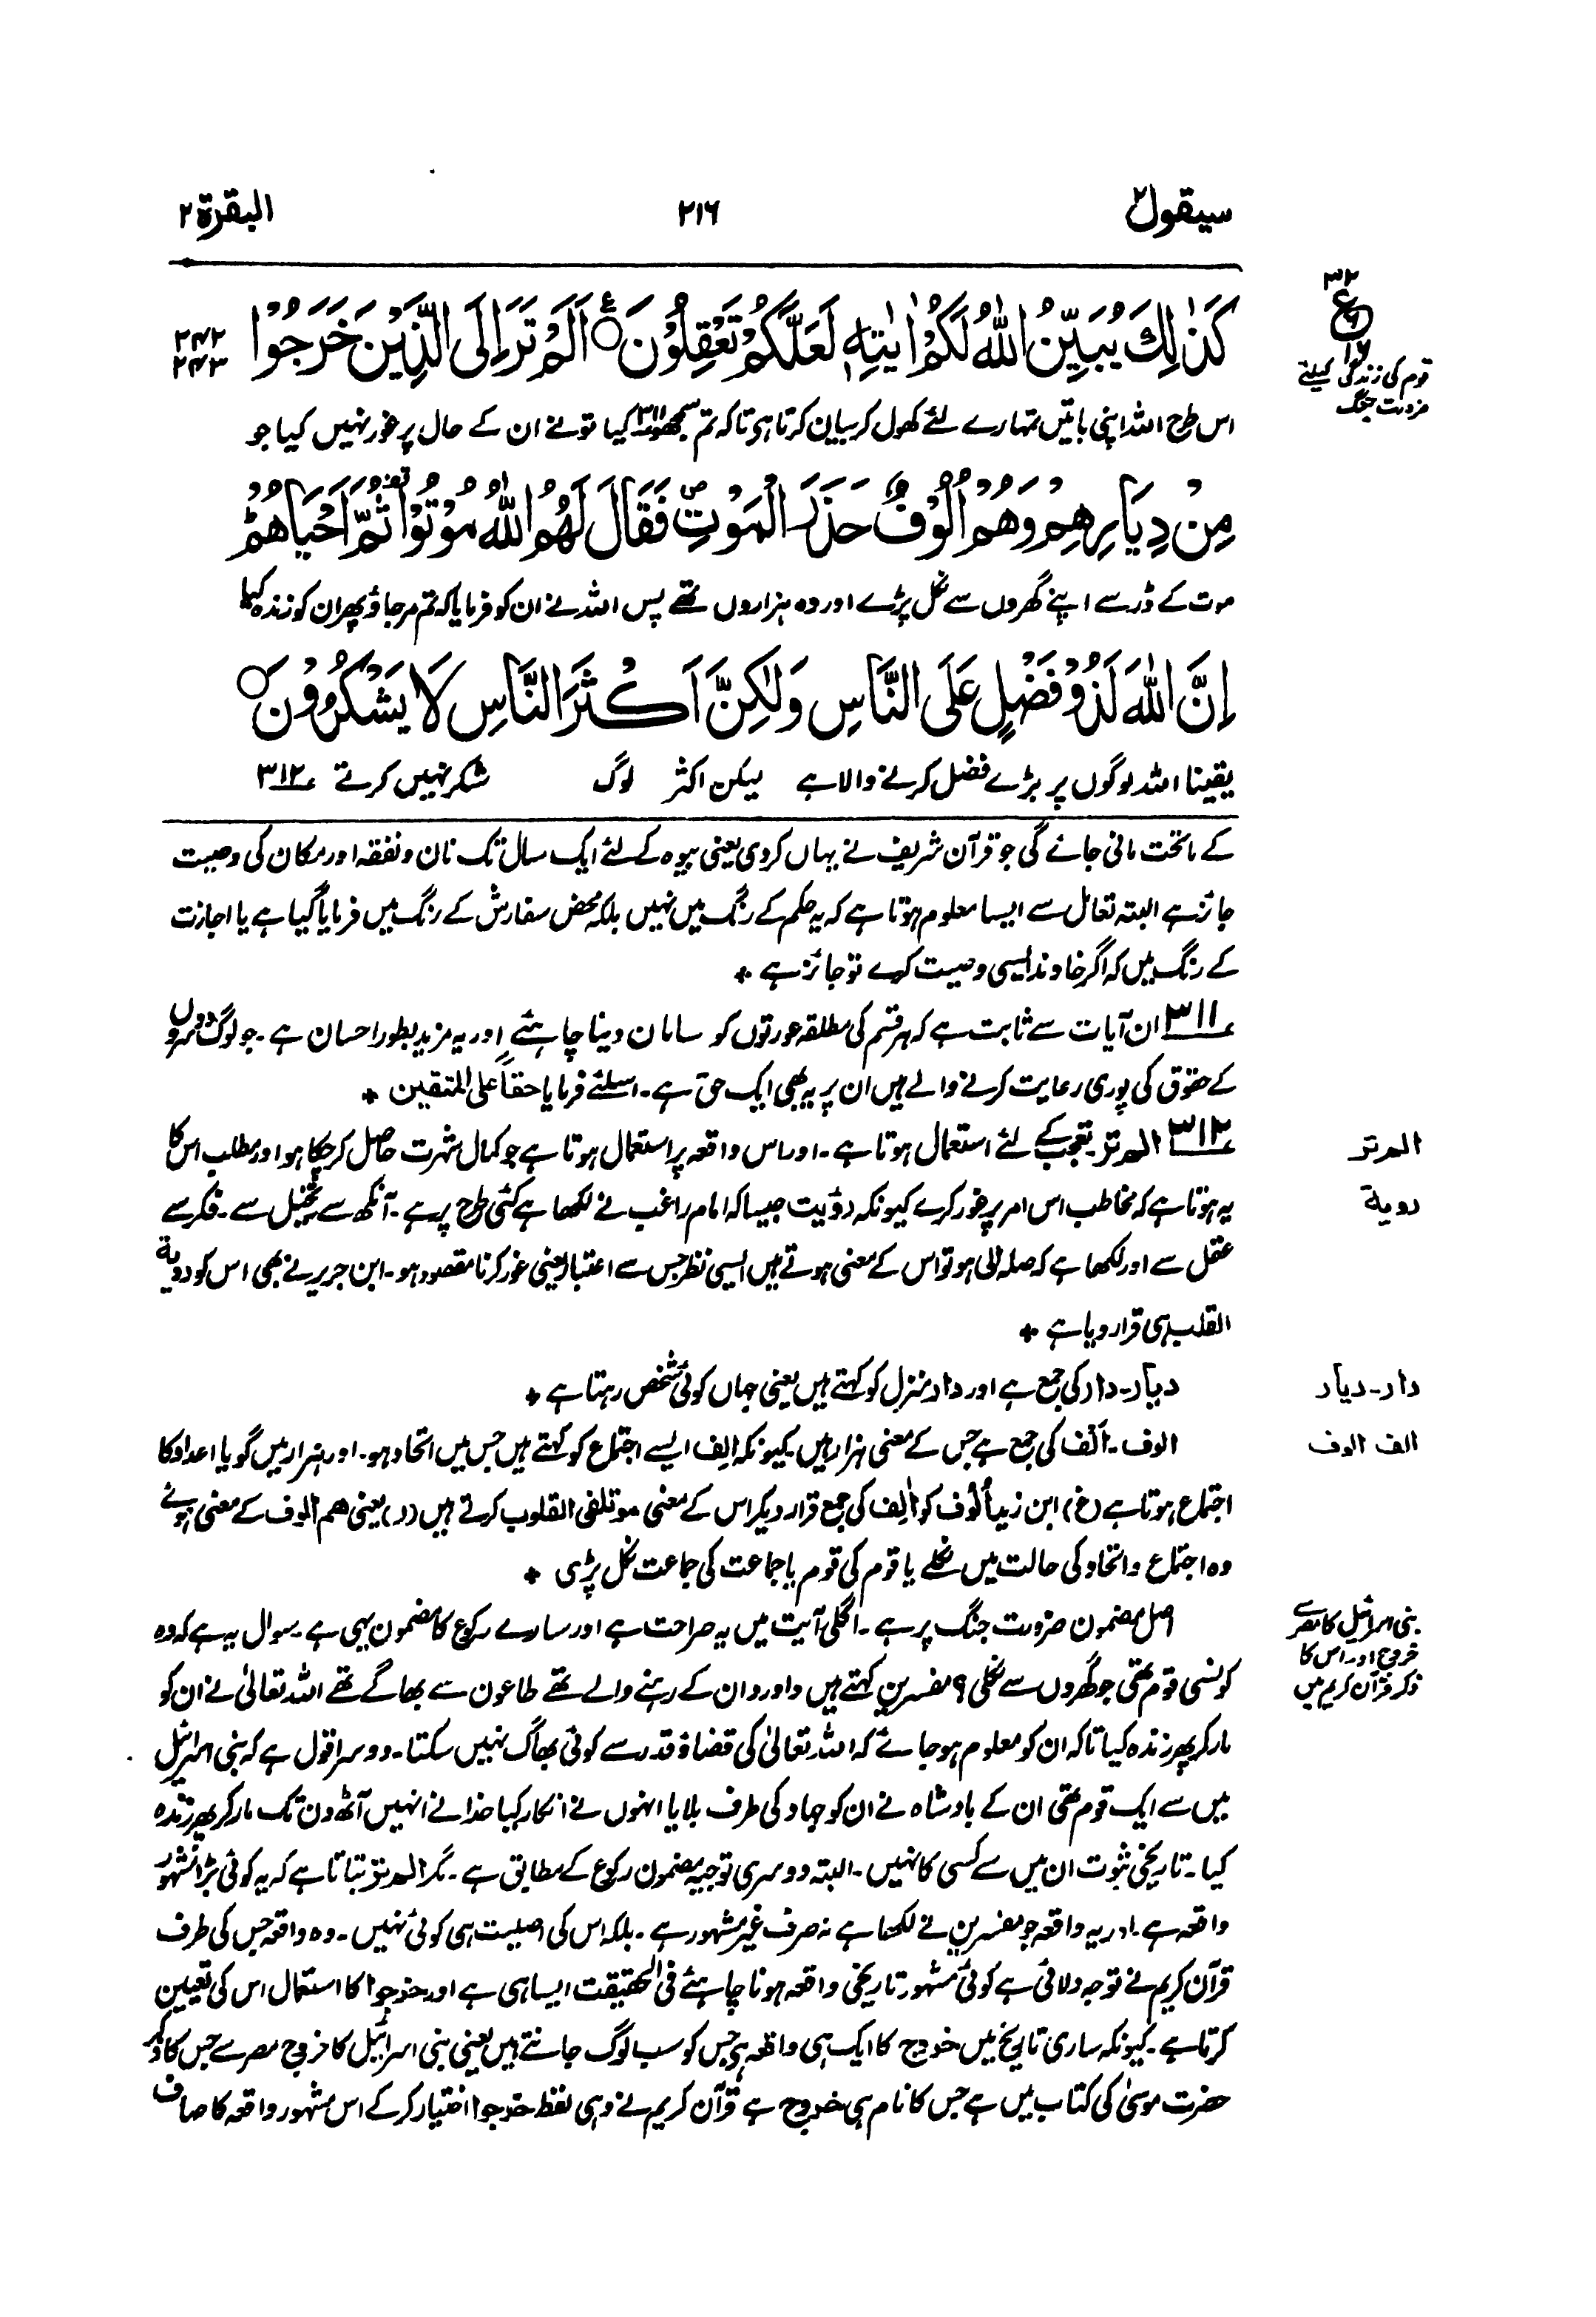 سیقول ۲
۲۱۶
البقرة ۲
۳۲
ع
قوم کی زندگی کیلئے
ضرورت جنگ
كَذٰلِكَ يُبَيِّنُ اللّٰهُ لَكُمْ اٰيٰتِهٖ لَعَلَّكُمْ تَعْقِلُوْنَ ۝ اَلَمْ تَرَ اِلَى الَّذِيْنَ خَرَجُوْا
۲۴۲
۲۴۳
اس طرح اللہ اپنی باتیں تمہارے لئے کھول کر بیان کرتا ہی تاکہ تم سمجھو ۳۱۱ کیا تو نے ان کے حال پر غور نہیں کیا جو
مِنْ دِيَارِهِمْ وَهُمْ اُلُوْفٌ حَذَرَ الْمَوْتِ فَقَالَ لَهُمُ اللّٰهُ مُوْتُوْا ثُمَّ اَحْيَاهُمْ
موت کے ڈر سے اپنے گھروں سے نکل پڑے اور وہ ہزاروں تھے پس اللہ نے ان کو فرمایا کہ تم مر جاؤ پھر ان کو زندہ کیا
اِنَّ اللّٰهَ لَذُوْ فَضْلٍ عَلَى النَّاسِ وَلٰكِنَّ اَكْثَرَ النَّاسِ لَا يَشْكُرُوْنَ ۝
یقینا اللہ لوگوں پر بڑے فضل کرنے والا ہے لیکن اکثر لوگ شکر نہیں کرتے ۳۱۲
کے ماتحت مانی جائے گی جو قرآن شریف نے یہاں کردی یعنی بیوہ کے لئے ایک سال تک نان و نفقہ اور مکان کی وصیت
جائز ہے البتہ تعامل سے ایسا معلوم ہوتا ہے کہ یہ حکم کے رنگ میں نہیں بلکہ محض سفارش کے رنگ میں فرمایا گیا ہے یا اجازت
کے رنگ میں کہ اگر خاوند ایسی وصیت کرے تو جائز ہے +
۳۱۱ ان آیات سے ثابت ہے کہ ہر قسم کی مطلقہ عورتوں کو سامان دینا چاہئے اور یہ مزید بطور احسان ہے۔ جو لوگ دوسروں
کے حقوق کی پوری رعایت کرنے والے ہیں ان پر یہ بھی ایک حق ہے۔ اسلئے فرمایا حقاً علی المتقین +
۳۱۲ الم تر۔ تعجب کے لئے استعمال ہوتا ہے۔ اور اس واقعہ پر استعمال ہوتا ہے جو کمال شہرت حاصل کرچکا ہو اور مطلب اس کا
الم تر
یہ ہوتا ہے کہ مخاطب اس امر پر غور کرے کیونکہ رؤیت جیسا کہ امام راغب نے لکھا ہے کئی طرح پر ہے۔ آنکھ سے تخیل سے۔ فکر سے
رویة
عقل سے اور لکھا ہے کہ صلہ الی ہو تو اس کے معنی ہوتے ہیں ایسی نظر جس سے اعتبار یعنی غور کرنا مقصود ہو۔ ابن جریر نے بھی اس کو رویة
القلب ہی قرار دیا ہے +
دیار۔ دار کی جمع ہے اور دار منزل کو کہتے ہیں یعنی جہاں کوئی شخص رہتا ہے +
دار۔ دیار
الوف۔ اَلف کی جمع ہے جس کے معنی ہزار ہیں۔ کیونکہ الِف ایسے اجتماع کو کہتے ہیں جس میں اتحاد ہو۔ اور ہزار میں گویا اعداد کا
الف الوف
اجتماع ہوتا ہے (غ) ابن زید اُلُوف کو اٰلِف کی جمع قرار دیکر اس کے معنی موتلفی القلوب کرتے ہیں (ر) یعنی ھم الوف کے معنی ہوئے
وہ اجتماع و اتحاد کی حالت میں نکلے یا قوم کی قوم یا جماعت کی جماعت نکل پڑی +
اصل مضمون ضرورت جنگ پر ہے۔ اگلی آیت میں یہ صراحت ہے اور سارے رکوع کا مضمون یہی ہے۔ سوال یہ ہے کہ وہ
بنی اسرائیل کا مصر سے
خروج اور اس کا
ذکر قرآن کریم میں
کونسی قوم تھی جو گھروں سے نکلی؟ مفسرین کہتے ہیں داوردان کے رہنے والے تھے طاعون سے بھاگے تھے اللہ تعالیٰ نے ان کو
مار کر پھر زندہ کیا تاکہ ان کو معلوم ہو جائے کہ اللہ تعالیٰ کی قضا و قدر سے کوئی بھاگ نہیں سکتا۔ دوسرا قول ہے کہ بنی اسرائیل
میں سے ایک قوم تھی ان کے بادشاہ نے ان کو جہاد کی طرف بلایا انہوں نے انکار کیا خدا نے انہیں آٹھ دن تک مار کر پھر زندہ
کیا۔ تاریخی ثبوت ان میں سے کسی کا نہیں۔ البتہ دوسری توجیہ مضمون رکوع کے مطابق ہے۔ مگر الم تر بتاتا ہے کہ یہ کوئی بڑا مشہور
واقعہ ہے۔ اور یہ واقعہ جو مفسرین نے لکھا ہے نہ صرف غیر مشہور ہے۔ بلکہ اس کی اصلیت ہی کوئی نہیں۔ وہ واقعہ جس کی طرف
قرآن کریم نے توجہ دلائی ہے کوئی مشہور تاریخی واقعہ ہونا چاہئے فی الحقیقت ایسا ہی ہے اور خرجوا کا استعمال اس کی تعیین
کرتا ہے۔ کیونکہ ساری تاریخ میں خروج کا ایک ہی واقعہ ہی جس کو سب لوگ جانتے ہیں یعنی بنی اسرائیل کا خروج مصر سے جس کا ذکر
حضرت موسیٰ کی کتاب میں ہے جس کا نام ہی خروج ہے قرآن کریم نے وہی لفظ خرجوا اختیار کرکے اس مشہور واقعہ کا صاف